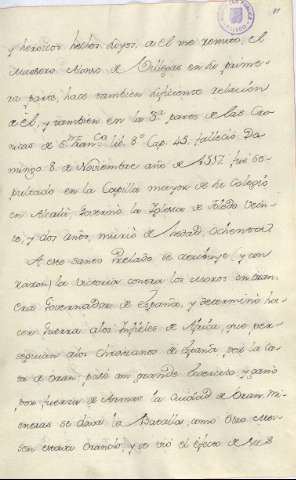 y heroicos hechos suyos, a el me remito, el
Maestro Alonso de Villegas en su prime-
ra parte, hace tambien suficiente relacion
de el, y tambien en la 3ª parte de las Cro-
nicas de S. Fran.co lib. 8º Cap. 43. fallecio Do-
mingo 8. de Noviembre año de 1517. fue se-
pultado en la Capilla mayor de su Colegio
en Alcalá, governó la Iglesia de Toledo vein-
te, y dos años, murio de hedad, ochenta
A este santo Prelado se atribuye, y con
razon la victoria contra los Moros en Oran,
era Governador de España, y determinó ha-
cer guerra a los Infieles de Africa, que per-
seguian a los Christianos de España por la cos-
ta de Oran, pasó un grande Exercito, y ganó
por fuerza de Armas la Ciudad de Oran, Mi-
entras se dava la Batalla, como otro Moy-
sen estava Orando, y se vió el efecto de sus